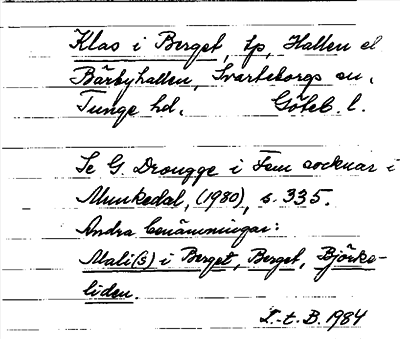 Klas i Berget, tp, Hallen el
Bärbyhallen, Svarteborgs sn,
Tunge hd. Göteb. l.
Se G. Drougge i Fem socknar i
Munkedal, (1980), s. 335.
Andra benämningar:
Mali(s) i Berget, Berget, Björke-
liden.
L-t. B. 1984